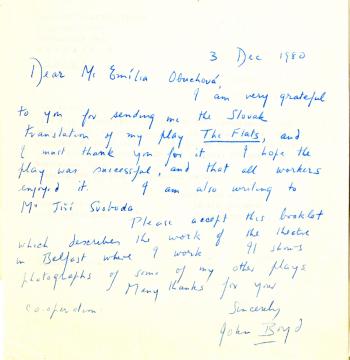 3 Dec 1980
Dear Mc Emília Obuchová,
I am very grateful
to you for sending me the Slovak
translation of my play The Flats, and
I must thank you for it I hope the
play was successful, and that all workers
enjoyed it. I am also writing to
Mr Jiří Svoboda
Please accept this booklet
which describes the work of the theatre
in Belfast where I work It shows
photographs of some of my other plays
Many thanks for your
co-operation
Sincerely
John Boyd